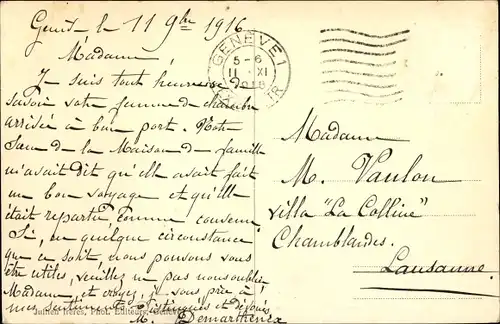 Genève le 11 9bre 1916
Madame,
Je suis tout heureuse
savoir votre femme de chambre
arrivée à bon port. Notre
Sœur de la Maison de famille
m'avait dit qu'elle avait fait
un bon voyage et qu'elle
était repartie comme convenu.
Si, en quelque circonstance
que ce soit nous pouvons vous
être utiles, veuillez ne pas nous oublier
Madame et croyez, je vous prie à
mes sentiments distingués et dévoués
M. Demarthenex
Jullien frères, Phot. Editeurs, Genève
GENÈVE 1
5-6
11 XI
1916
Madame
M. Vaulon
villa "La Colline"
Chamblandes.
Lausanne.